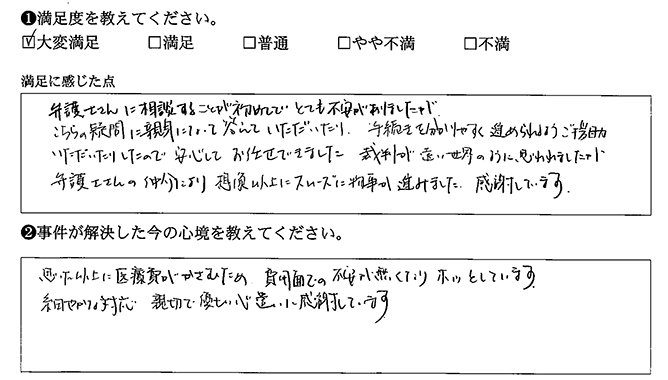 ❶満足度を教えてください。
☑大変満足 □満足 □普通 □やや不満 □不満
満足に感じた点
弁護士さんに相談することが初めてで とても不安がありましたが
こちらの疑問に親身になって答えていただいたり、手続きを分かりやすく進められるようご援助
いただいたりしたので 安心して お任せできました 裁判が 遠い世界のように思われましたが
弁護士さんの仲介により 想像以上にスムーズに物事が進みました. 感謝しています.
❷事件が解決した今の心境を教えてください。
思った以上に医療費がかさむため 費用面での 不安が無くなり ホッとしています.
細やかな対応 親切で優しい心遣いに感謝しています